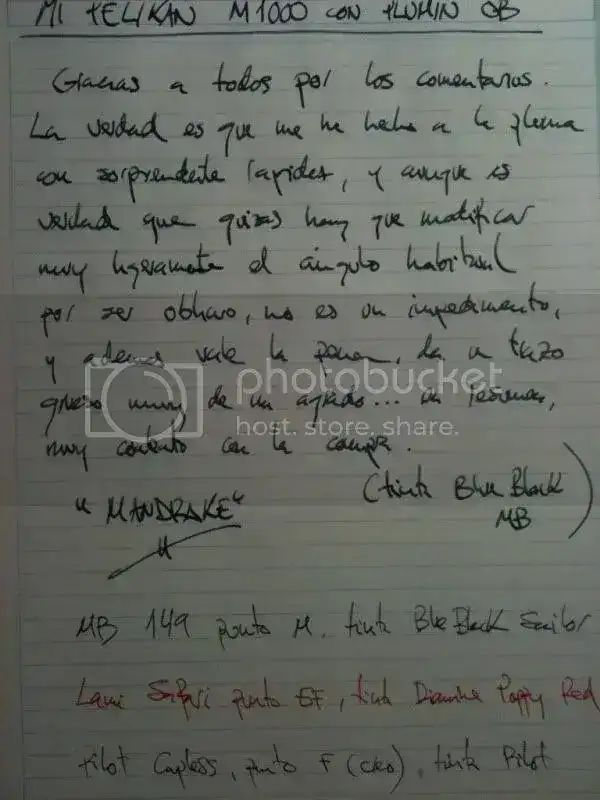 MI PELIKAN M1000 CON PLUMIN OB
Gracias a todos por los comentarios.
La verdad es que me he hecho a la pluma
con sorprendente rapidez, y aunque es
verdad que quizas hay que modificar
muy ligeramente el ángulo habitual
por ser oblicuo, no es un impedimento,
y además vale la pena, da un trazo
grueso muy de mi agrado... en resumen,
muy contento con la compra.
(tinta Blue Black
"MANDRAKE"
MB)
photobucket
host. store. share.
MB 149 punto M. tinta Blue Black Sailor
Lami Safari punto EF, tinta Diamine Poppy Red
Pilot Capless, punto F (oro), tinta Pilot